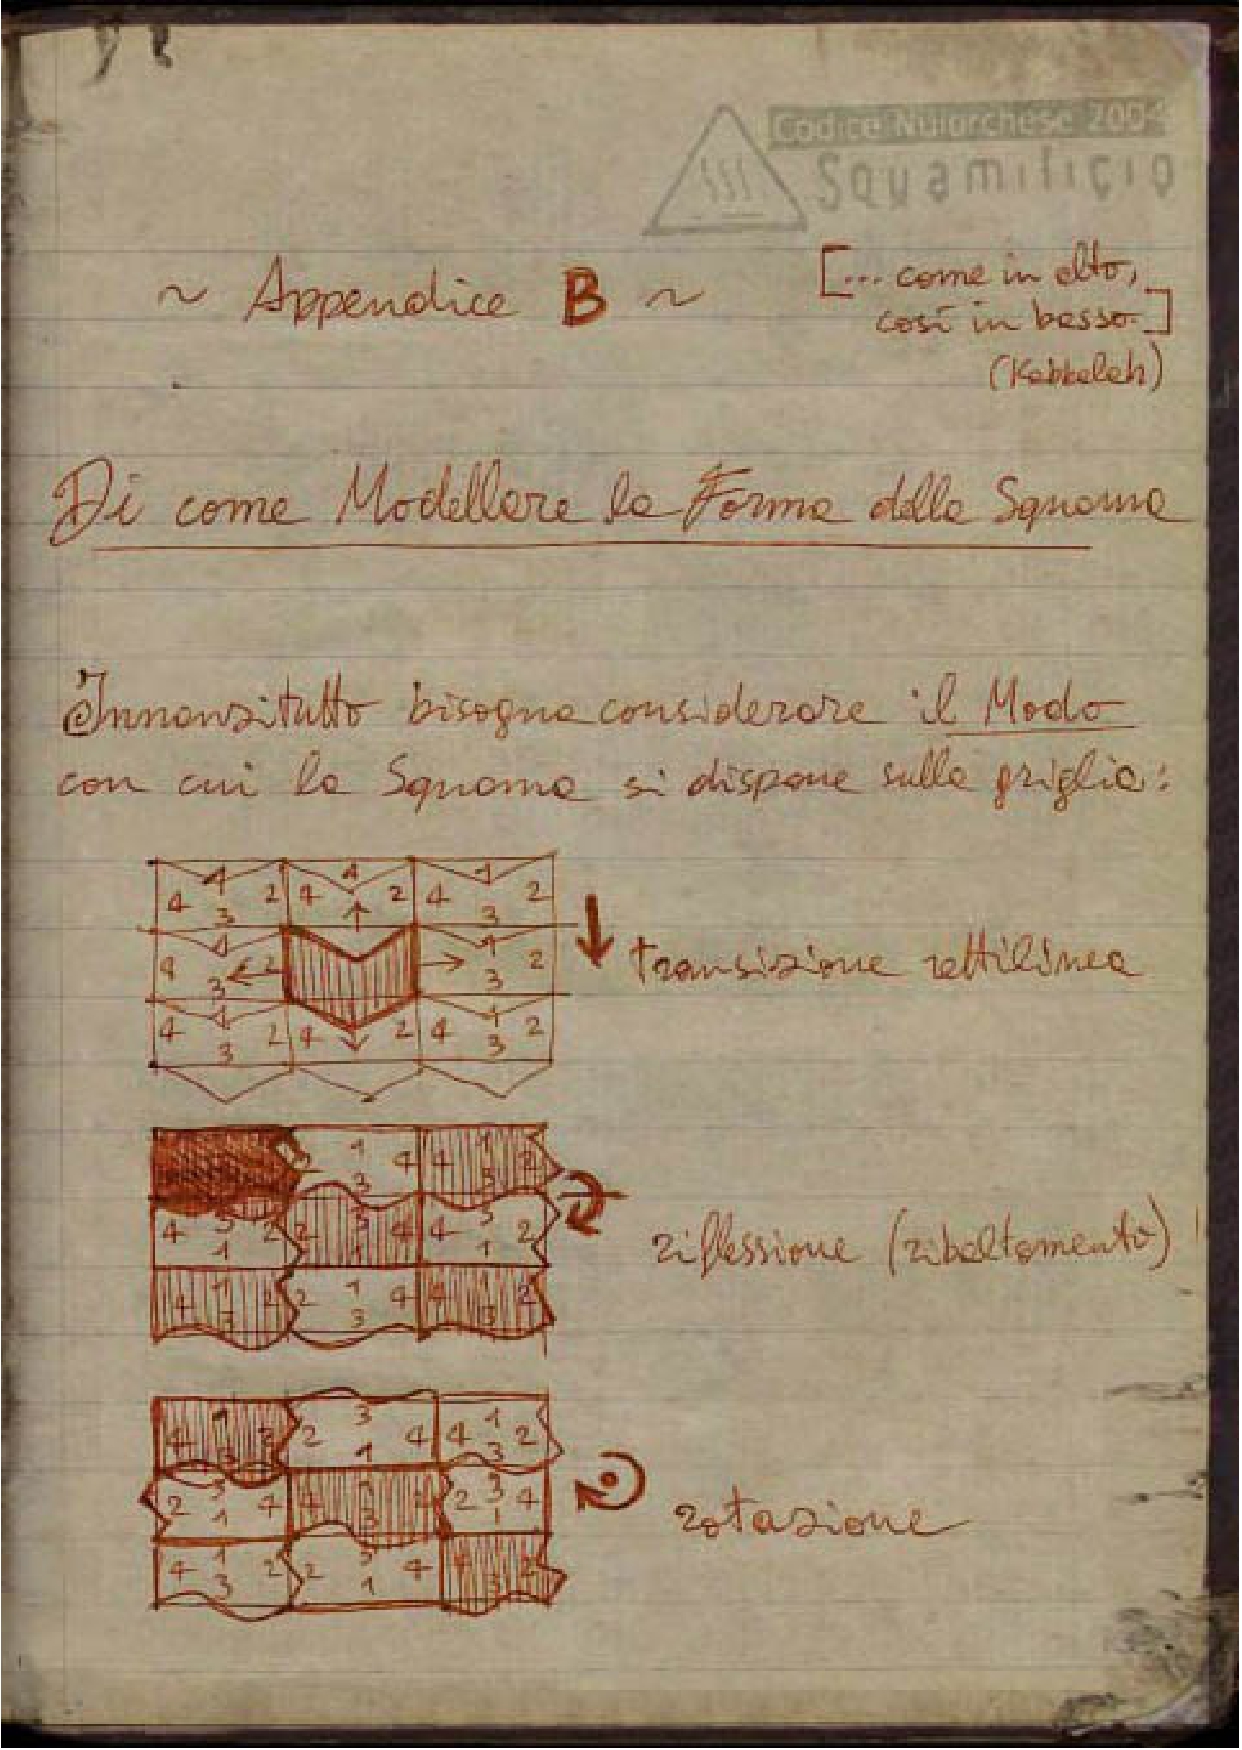 Codice Nuiarchese 2004
Squamificio
~ Appendice B ~
[... come in alto,
così in basso.]
(Kabbalah)
Di come Modellare la Forma della Squama
Innanzitutto bisogna considerare il Modo
con cui la Squama si dispone sulla griglia:
1 1 1
4 2 4 2 4 2
3 3
1 1
4 2 2
3 3
1 1
4 2 4 2 4 2
3 3
transizione rettilinea
1 1
4 4 2
3 3
3 3 3
4 2 2 4 4 2
1 1 1
1 1 1
4 2 2 4 4 2
3 3 3
riflessione (ribaltamento)
1 3 1
4 2 2 4 4 2
3 1 3
3 3
2 4 4 2 4
1 3 1
1 3
4 2 2 4 2
3 1 3
rotazione